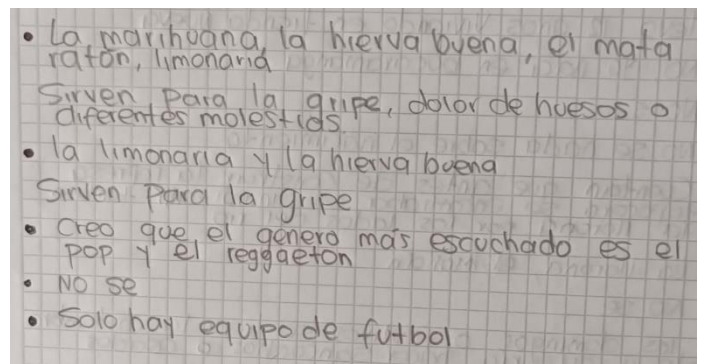 • La marihoana, la hierva buena, el mata
ratón, limonaria
Sirven para la gripe, dolor de huesos o
diferentes molestias.
• la limonaria y la hierva buena
Sirven para la gripe
• Creo que el genero más escuchado es el
pop y el reggaeton
• No se
• Solo hay equipo de futbol